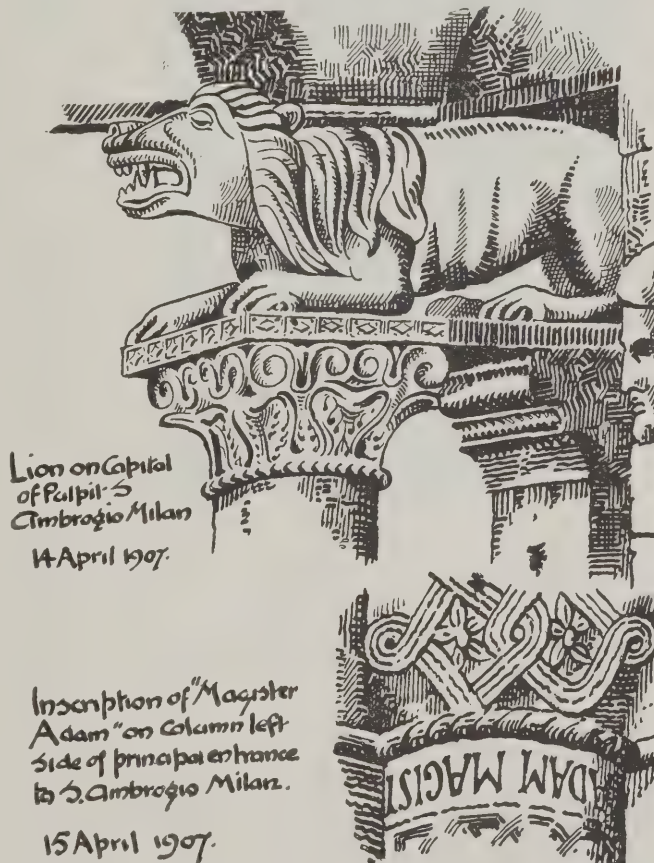 Lion on Capital
of Pulpit S
Ambrogio Milan
14 April 1907.
Inscription of "Magister
Adam" on Column left
side of principal entrance
to S. Ambrogio Milan.
15 April 1907.
ADAM MAGIS